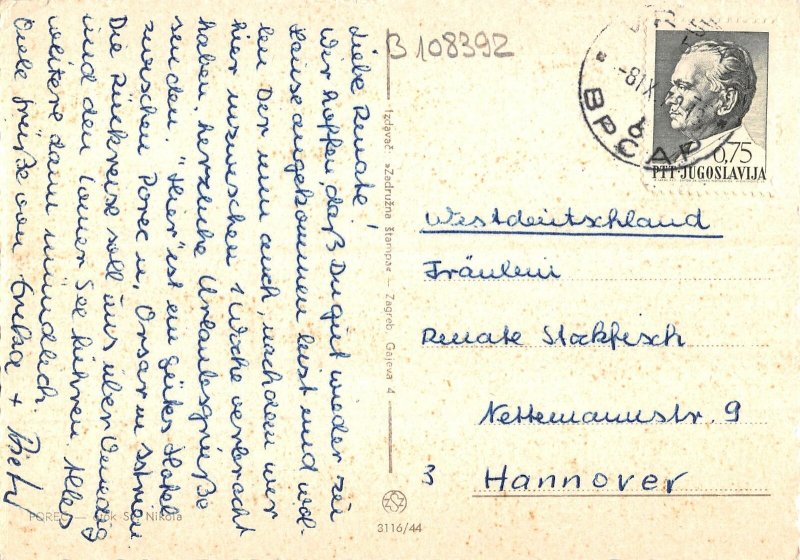 Liebe Renate!
Wir hoffen, daß Du gut wieder zu
Hause angekommen bist und wol-
len Dir nun auch, nachdem wir
hier inzwischen 1 Woche verbracht
haben, herzliche Urlaubsgrüße
senden. "Hier" ist ein gutes Hotel
zwischen Porec u. Orsar in Istrien.
Die Rückreise soll uns über Venedig
und den Comer See führen. Alles
weitere dann mündlich.
Viele Grüße von Erika +
B 108392
Izdavač: »Zadružna Štampa« — Zagreb, Gajeva 4
3116/44
POREČ — Otok Sv. Nikola
ВРСАР
0,75
PTT·JUGOSLAVIJA
Westdeutschland
Fräulein
Renate Stockfisch
Nettemannstr. 9
3 Hannover